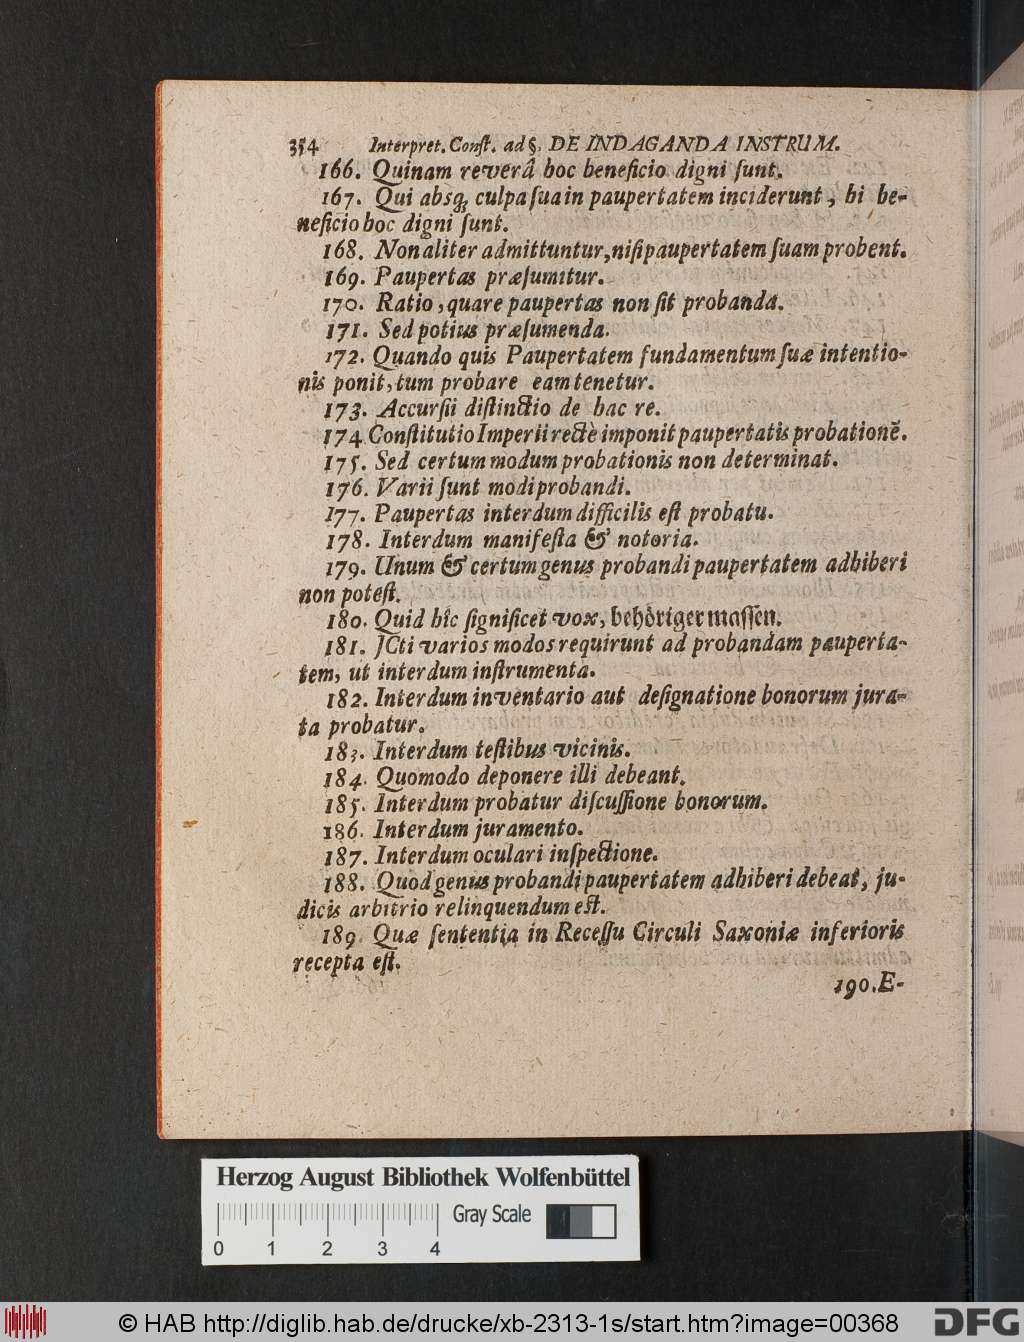 354 Interpret. Conſt. ad §. DE INDAGANDA INSTRUM.
166. Quinam reverâ hoc beneficio digni ſunt.
167. Qui absq; culpa ſua in paupertatem inciderunt, hi be-
neficio hoc digni ſunt.
168. Non aliter admittuntur, niſi paupertatem ſuam probent.
169. Paupertas præſumitur.
170. Ratio, quare paupertas non ſit probanda.
171. Sed potius præſumenda.
172. Quando quis Paupertatem fundamentum ſuæ intentio-
nis ponit, tum probare eam tenetur.
173. Accurſii diſtinctio de hac re.
174 Conſtitutio Imperii rectè imponit paupertatis probationẽ.
175. Sed certum modum probationis non determinat.
176. Varii ſunt modi probandi.
177. Paupertas interdum difficilis eſt probatu.
178. Interdum manifeſta & notoria.
179. Unum & certum genus probandi paupertatem adhiberi
non poteſt.
180. Quid hîc ſignificet vox, behöriger maſſen.
181. JCti varios modos requirunt ad probandam pauperta-
tem, ut interdum inſtrumenta.
182. Interdum inventario aut deſignatione bonorum jura-
ta probatur.
183. Interdum teſtibus vicinis.
184. Quomodo deponere illi debeant.
185. Interdum probatur diſcuſſione bonorum.
186. Interdum juramento.
187. Interdum oculari inſpectione.
188. Quod genus probandi paupertatem adhiberi debeat, ju-
dicis arbitrio relinquendum eſt.
189. Quæ ſententia in Receſſu Circuli Saxoniæ inferioris
recepta eſt.
190. E-
Herzog August Bibliothek Wolfenbüttel
Gray Scale
0 1 2 3 4
© HAB http://diglib.hab.de/drucke/xb-2313-1s/start.htm?image=00368
DFG